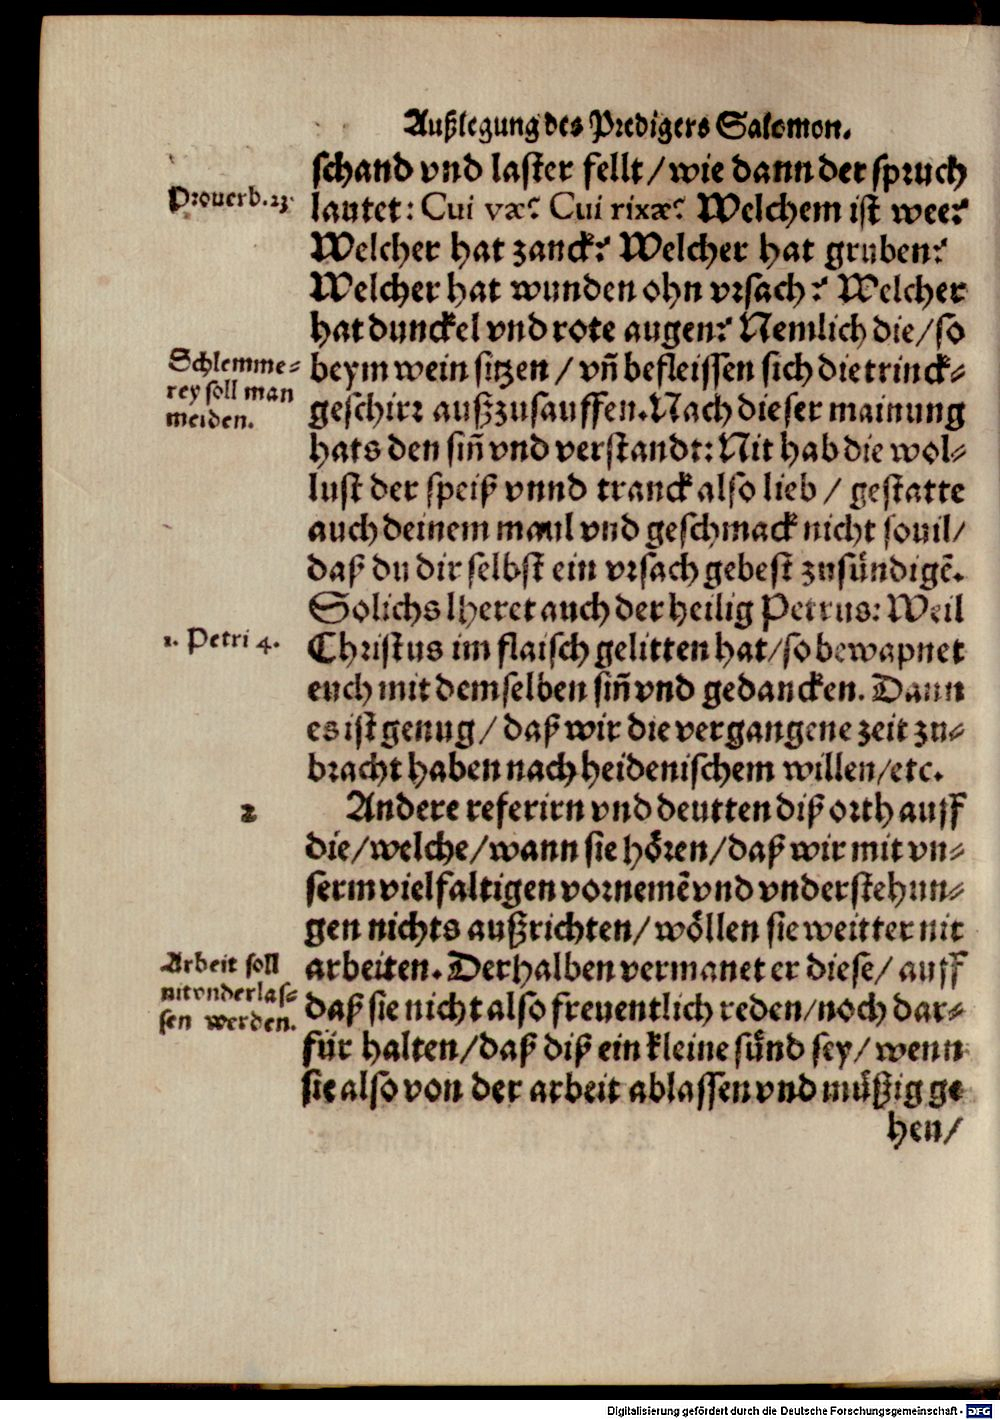 Außlegung des Predigers Salomon.
schand vnd laster fellt / wie dann der spruch
Prouerb. 23.
lautet: Cui væ? Cui rixæ? Welchem ist wee?
Welcher hat zanck? Welcher hat gruben?
Welcher hat wunden ohn vrsach? Welcher
hat dunckel vnd rote augen? Nemlich die / so
Schlemme-
rey soll man
meiden.
beym wein sitzen / vñ befleissen sich die trinck-
geschirr außzusauffen. Nach dieser mainung
hats den siñ vnd verstandt: Nit hab die wol-
lust der speiß vnnd tranck also lieb / gestatte
auch deinem maul vnd geschmack nicht souil /
daß du dir selbst ein vrsach gebest zusündigẽ.
Solichs lheret auch der heilig Petrus: Weil
1. Petri 4.
Christus im flaisch gelitten hat / so bewapnet
euch mit demselben siñ vnd gedancken. Dann
es ist genug / daß wir die vergangene zeit zu-
bracht haben nach heidenischem willen / etc.
2
Andere referirn vnd deutten diß orth auff
die / welche / wann sie hören / daß wir mit vn-
serm vielfaltigen vornemẽ vnd vnderstehun-
gen nichts außrichten / wöllen sie weitter nit
Arbeit soll
nit vnderlas-
sen werden.
arbeiten. Derhalben vermanet er diese / auff
daß sie nicht also freuentlich reden / noch dar-
für halten / daß diß ein kleine sünd sey / wenn
sie also von der arbeit ablassen vnd müßig ge
hen /
Digitalisierung gefördert durch die Deutsche Forschungsgemeinschaft - DFG